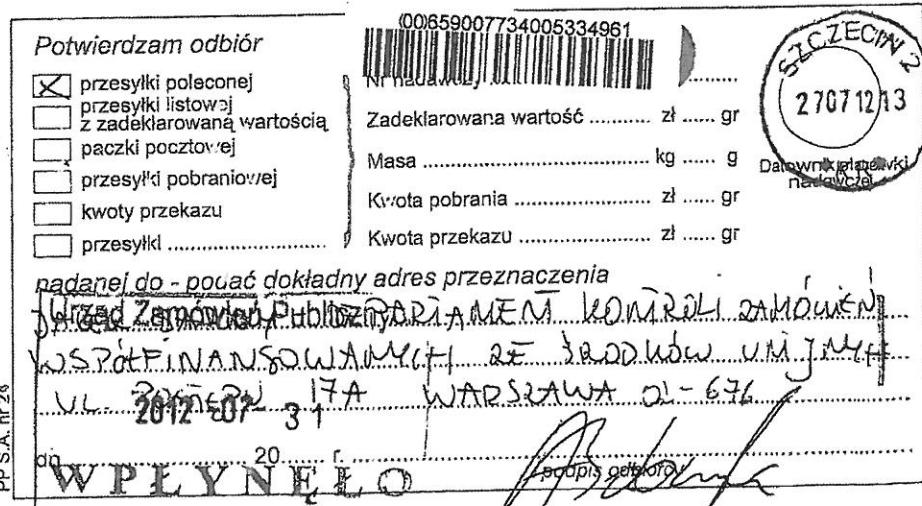 (00659007734005334961
Potwierdzam odbiór
przesyłki poleconej
przesyłki listowej
z zadeklarowaną wartością
paczki pocztowej
przesyłki pobraniowej
kwoty przekazu
przesyłki ..........................
Nr nadawczy ..........
Zadeklarowana wartość ........... zł ...... gr
Masa ........................................ kg ...... g
Kwota pobrania ...................... zł ...... gr
Kwota przekazu ...................... zł ...... gr
SZCZECIN 2
270712 13
Datownik placówki
nadawczej
nadanej do - podać dokładny adres przeznaczenia
Urząd Zamówień Publicznych
DEPARTAMENT KONTROLI ZAMÓWIEŃ
WSPÓŁFINANSOWANYCH ZE ŚRODKÓW UNIJNYCH
UL. 17A WARSZAWA 01-676
2012 -07- 31
dn. 20 ...... r.
WPŁYNĘŁO
podpis odbiorcy
PP S.A. nr 26